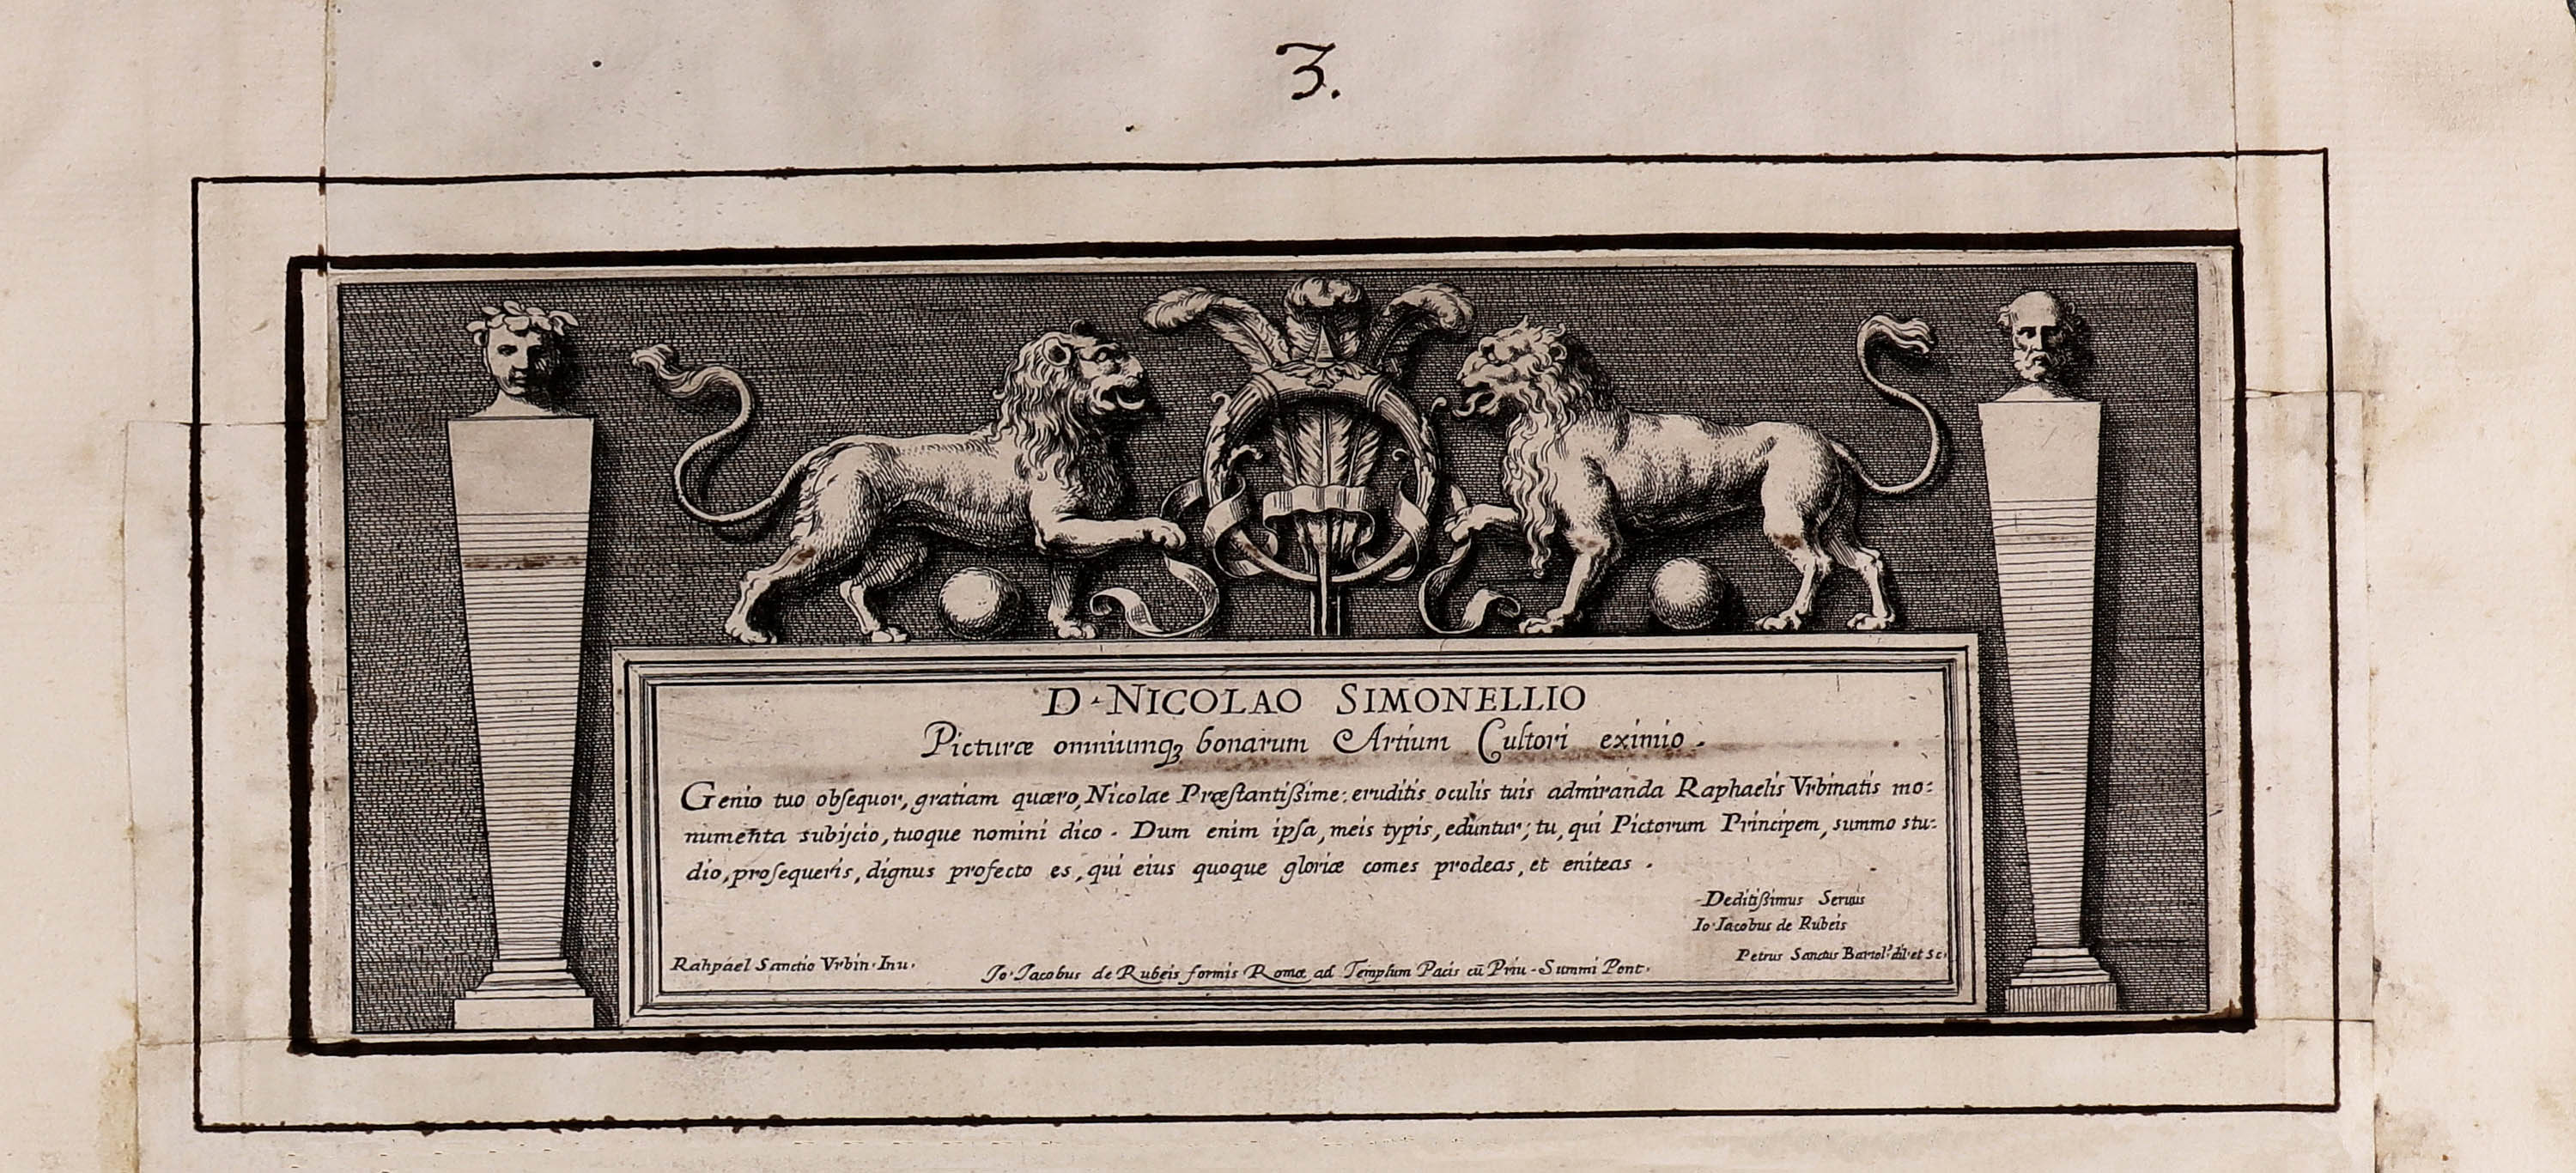 3.
D. NICOLAO SIMONELLIO
Picturæ omniumqꝫ bonarum Artium Cultori eximio.
Genio tuo obſequor, gratiam quæro, Nicolae Præſtantiſſime: eruditis oculis tuis admiranda Raphaelis Vrbinatis mo:
numenta subijcio, tuoque nomini dico. Dum enim ipſa, meis typis, eduntur; tu, qui Pictorum Principem, summo stu:
dio, proſequeris, dignus profecto es, qui eius quoque gloriæ comes prodeas, et eniteas.
Deditiſſimus Seruus
Io. Iacobus de Rubeis
Petrus Sanctus Bartol.ˢ dil. et Sc.
Rahpael Sanctio Vrbin. Inu.
Io. Iacobus de Rubeis formis Romæ ad Templum Pacis cū Priu. Summi Pont.